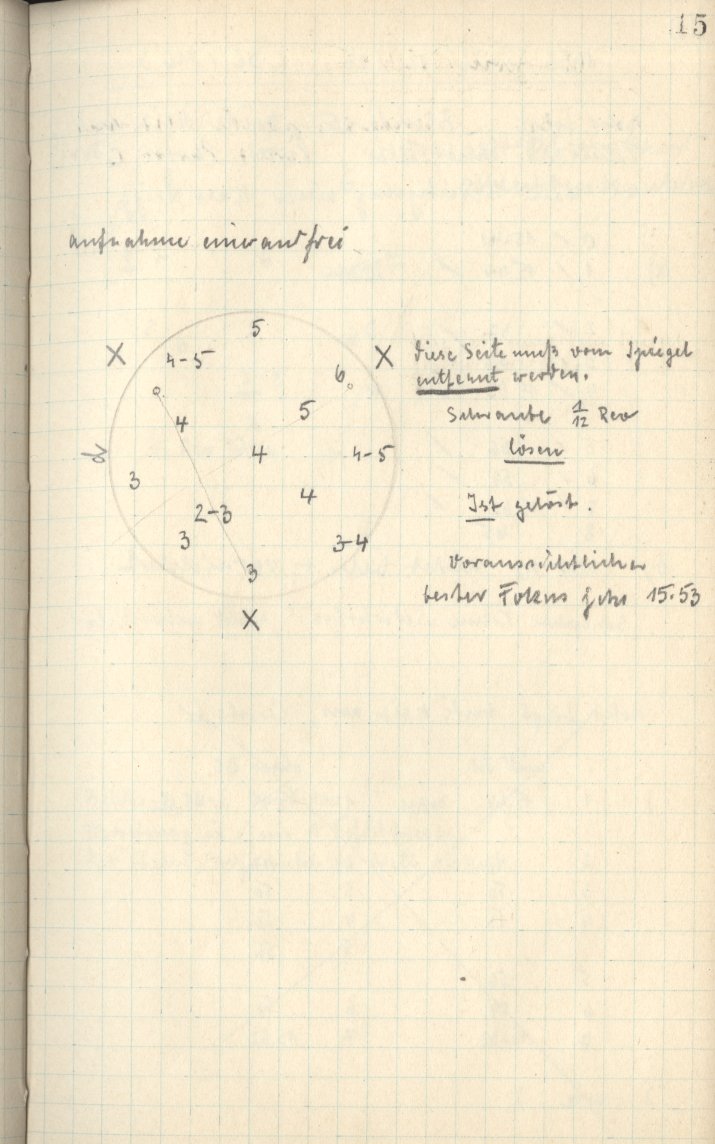 15
aufnahme einwandfrei
5
X
4-5
6
X
diese Seite muß vom Spiegel
entfernt werden.
4
5
Schraube 1/12 Rev
α
4
4-5
lösen
3
4
Ist gelöst.
2-3
3
3-4
3
voraussichtlicher
bester Fokus 15.53
X